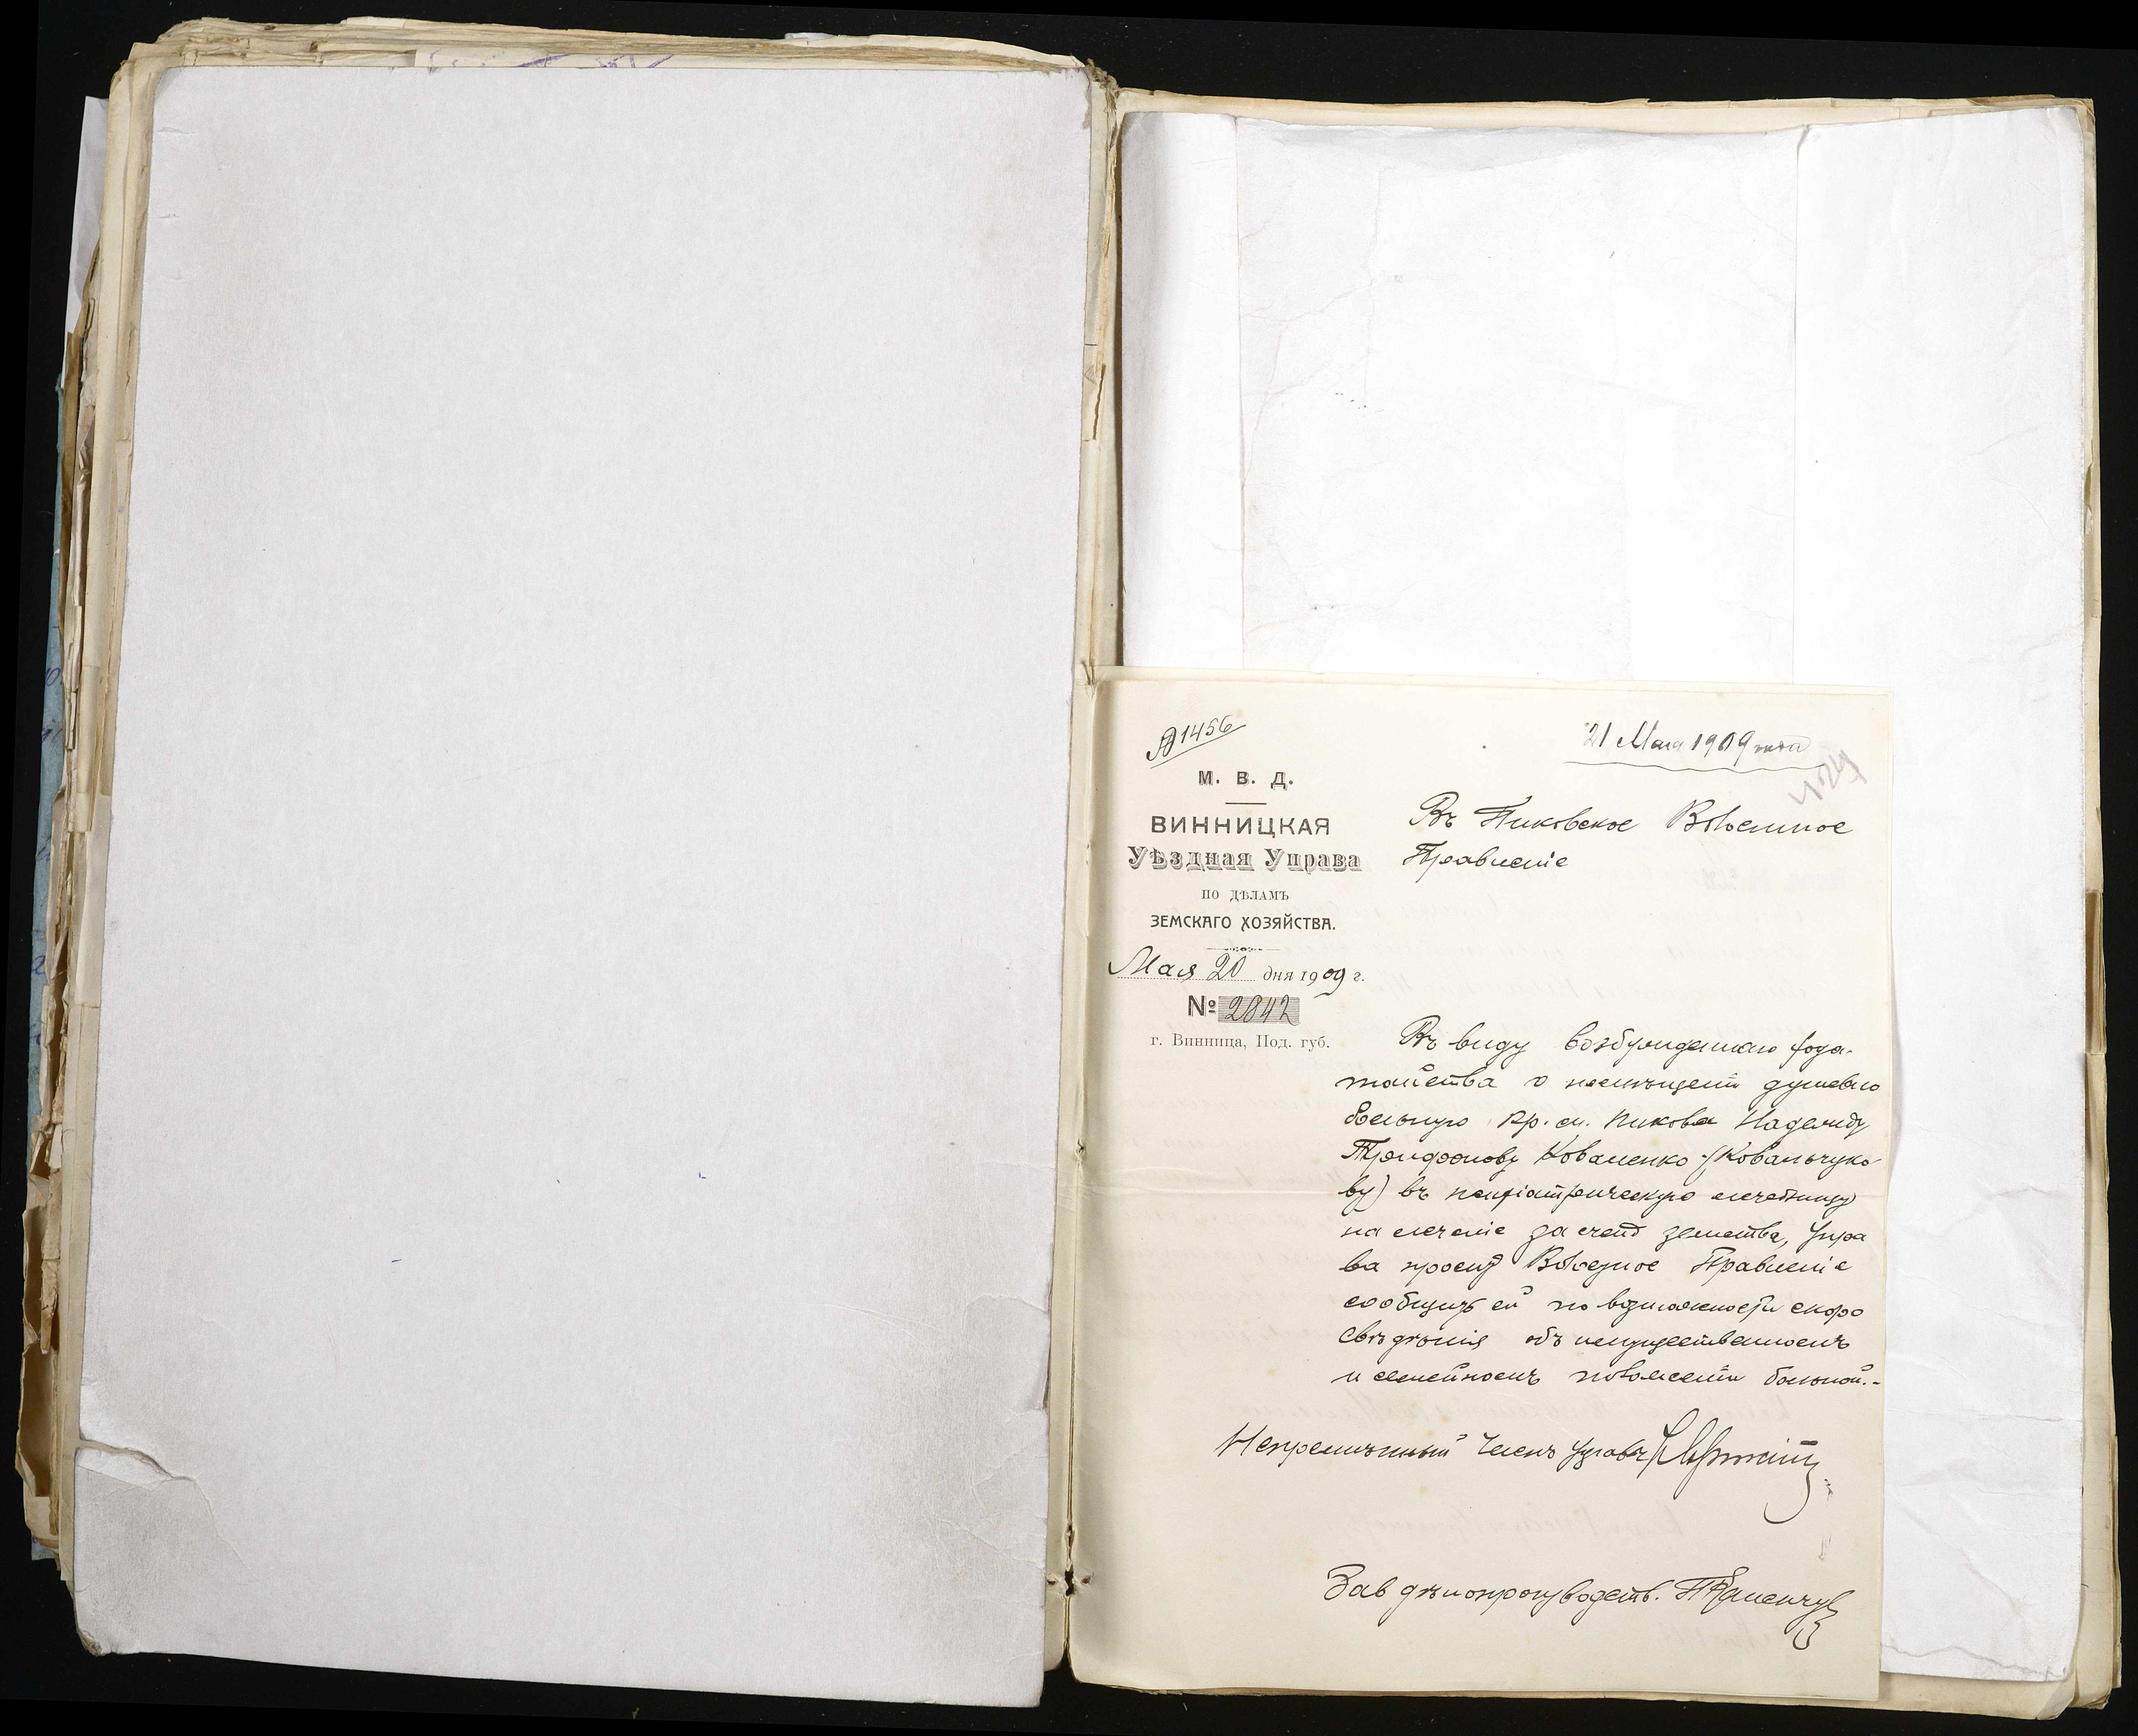 № 1456
21 Мая 1909 года
429
М. В. Д.
ВИННИЦКАЯ
Уѣздная Управа
ПО ДѢЛАМЪ
ЗЕМСКАГО ХОЗЯЙСТВА.
Мая 20 дня 1909 г.
№ 2842
г. Винница, Под. губ.
Въ Пиковское Волостное
Правленіе
Въ виду возбужденнаго хода-
тайства о помѣщеніи душевно
больную кр. м. Пикова Надежду
Трифонову Коваленко (Ковальчуко
ву) въ психіатрическую лечебницу
на леченіе за счетъ земства, Упра
ва проситъ Волостное Правленіе
сообщить ей по возможности скоро
свѣдѣнія объ имущественномъ
и семейномъ положеніи больной.-
Непремѣнный Членъ Управы
Зав дѣлопроизводств.